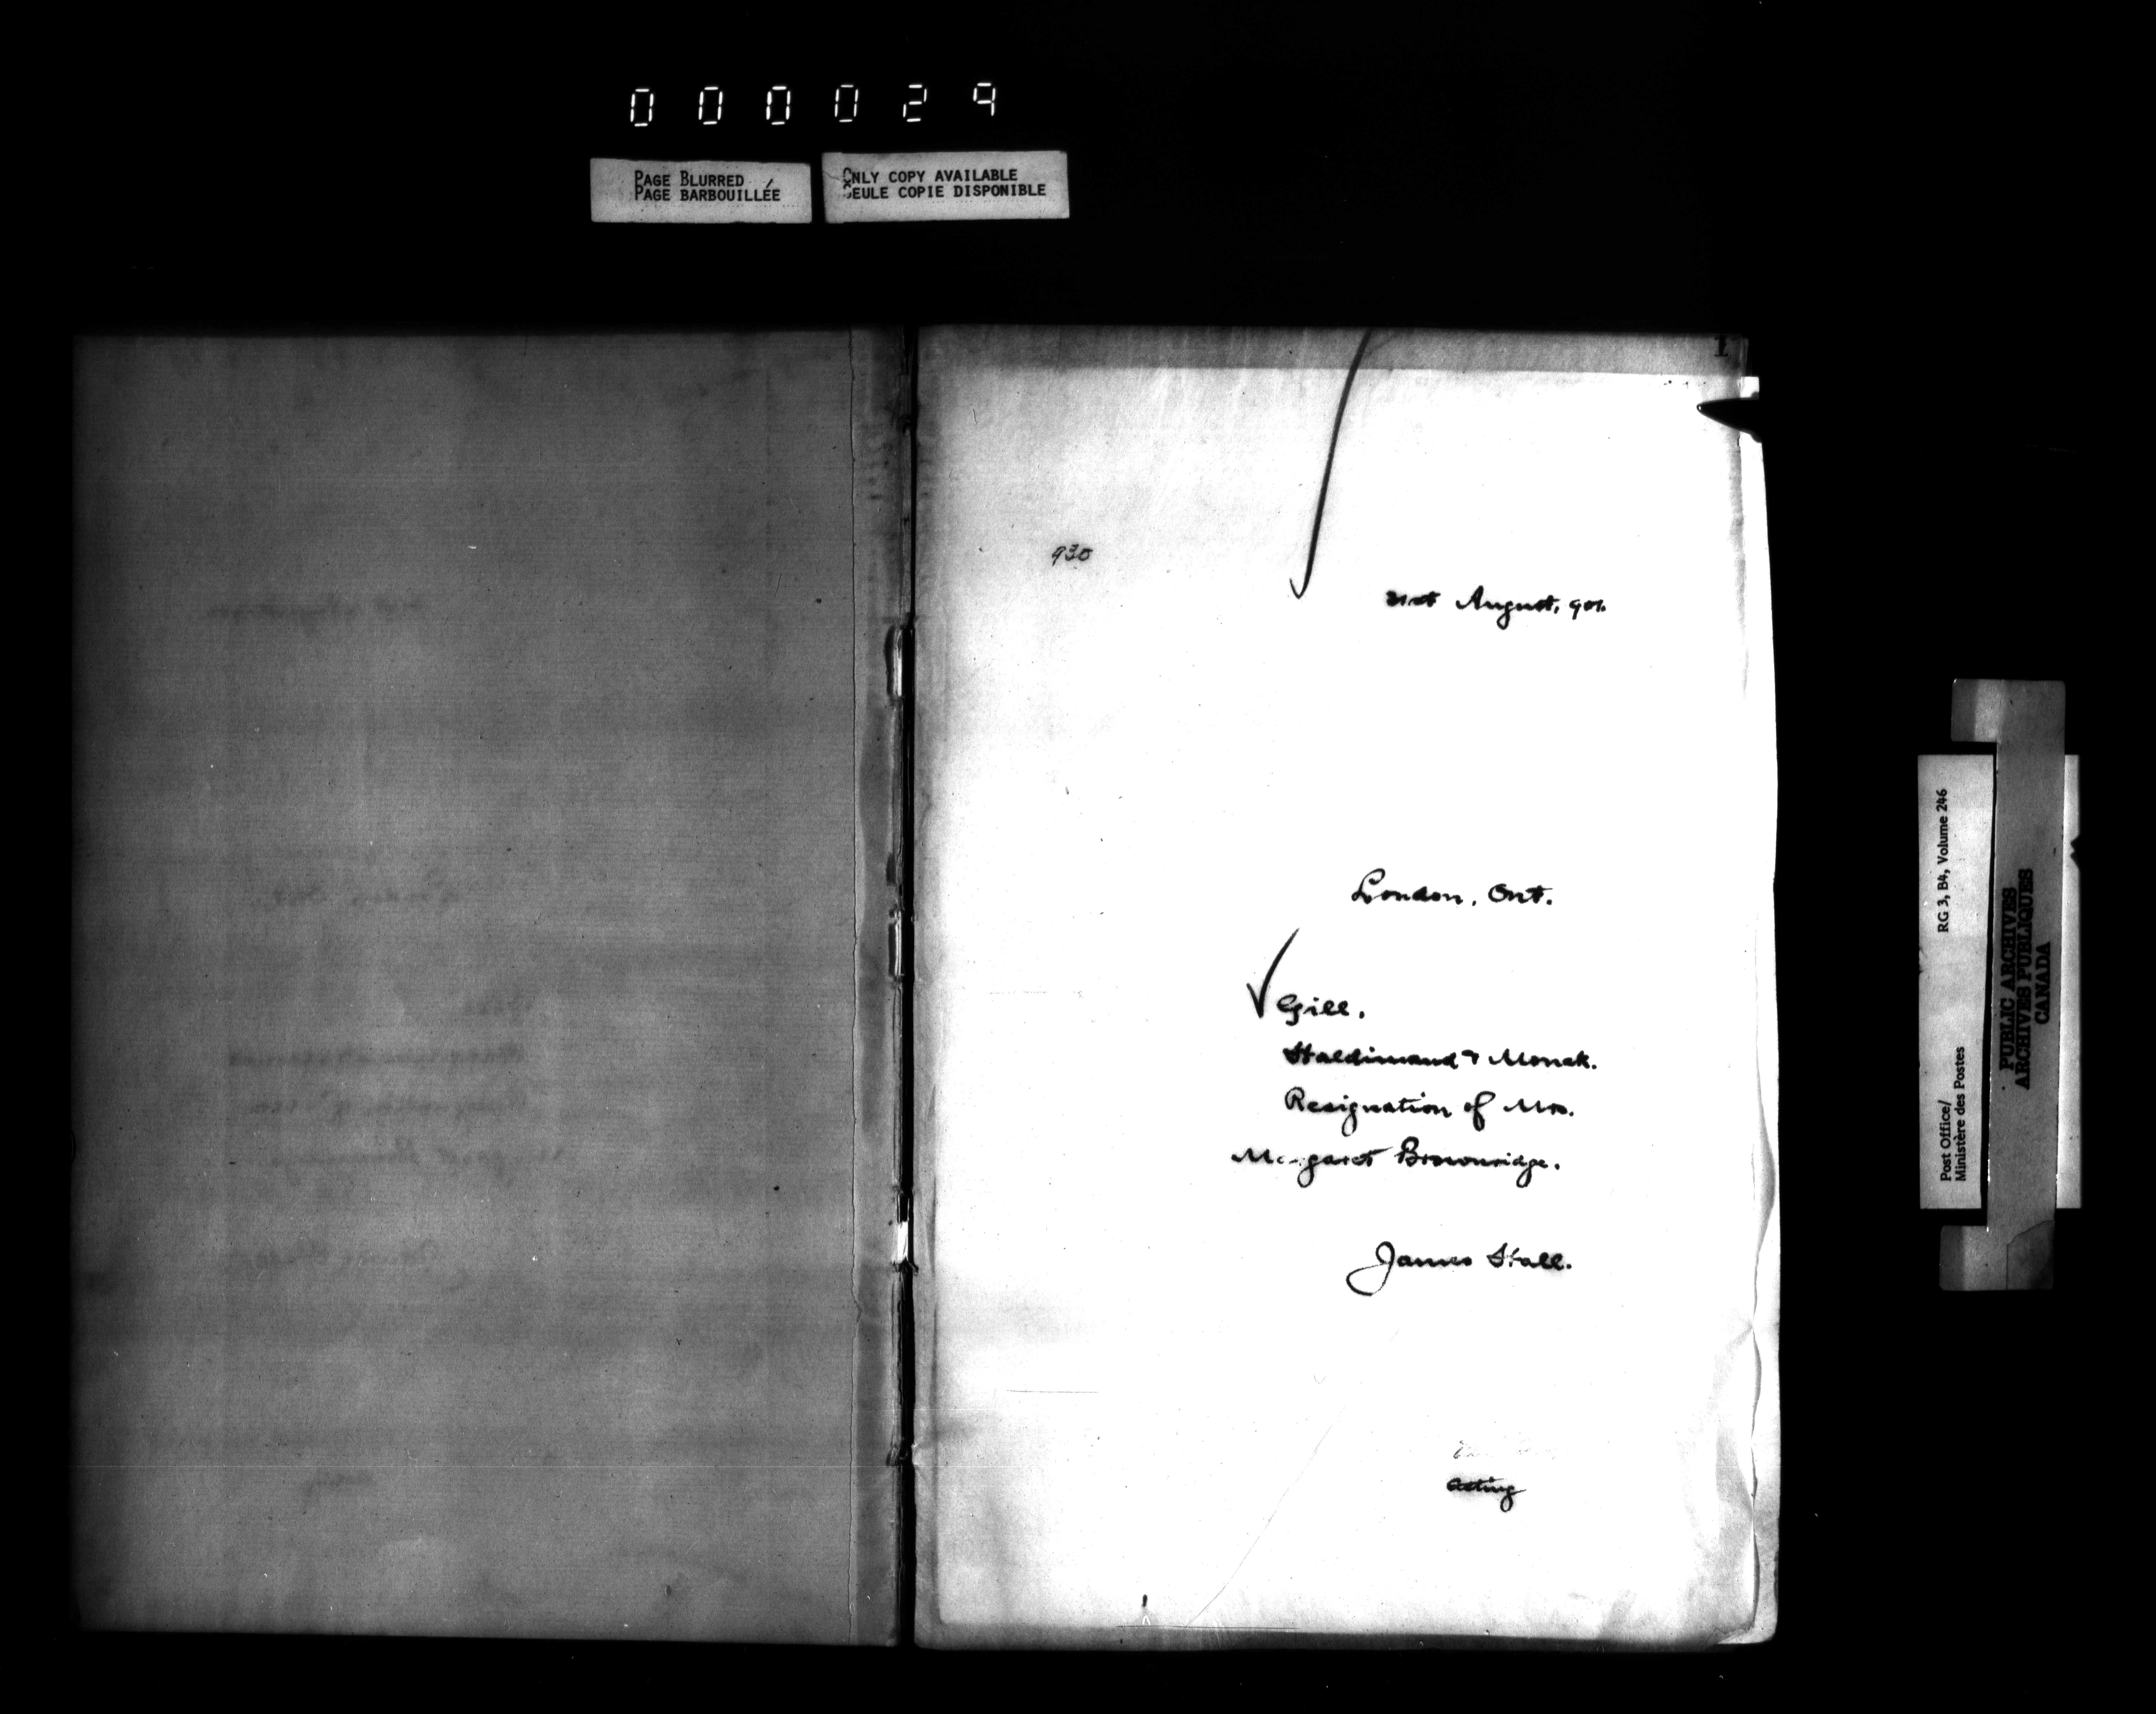 000029
PAGE BLURRED
PAGE BARBOUILLÉE
ONLY COPY AVAILABLE
SEULE COPIE DISPONIBLE
1
930
21st August, 901.
London, Ont.
Gill.
Haldimand & Monck.
Resignation of Mrs.
Margaret Brownridge.
James Hall.
Acting
RG 3, B4, Volume 246
Post Office/
Ministère des Postes
PUBLIC ARCHIVES
ARCHIVES PUBLIQUES
CANADA